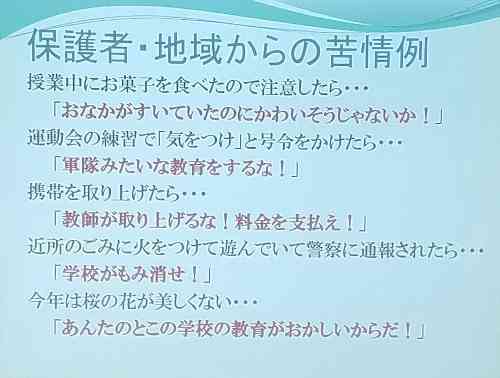 保護者・地域からの苦情例
授業中にお菓子を食べたので注意したら・・・
「おなかがすいていたのにかわいそうじゃないか！」
運動会の練習で「気をつけ」と号令をかけたら・・・
「軍隊みたいな教育をするな！」
携帯を取り上げたら・・・
「教師が取り上げるな！料金を支払え！」
近所のごみに火をつけて遊んでいて警察に通報されたら・・・
「学校がもみ消せ！」
今年は桜の花が美しくない・・・
「あんたのとこの学校の教育がおかしいからだ！」